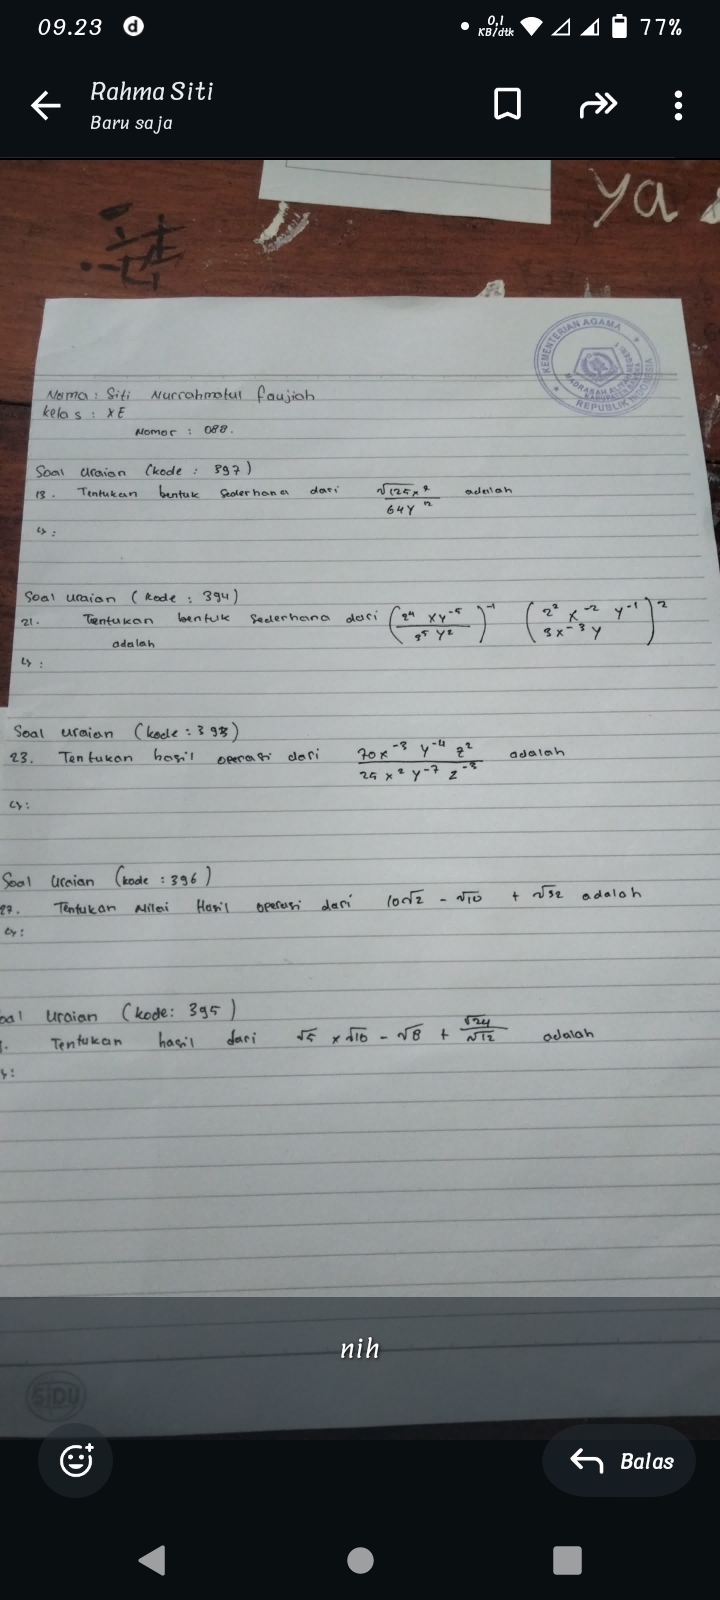 09.23
0,1
KB/dtk
77%
Rahma Siti
Baru saja
ya
KEMENTERIAN AGAMA
REPUBLIK INDONESIA
Nama : Siti Nurrahmatul faujiah
kelas : XE
Nomor : 088.
Soal uraian (kode : 397)
13. Tentukan bentuk sederhana dari √125x⁸ / 64y¹² adalah
↳ :
Soal uraian (kode : 394)
21. Tentukan bentuk sederhana dari (2⁴ xy⁻⁵ / 3⁵ y²)⁻¹ (2² x⁻² y⁻¹ / 3x⁻³ y)²
adalah
↳ :
Soal uraian (kode : 393)
23. Tentukan hasil operasi dari 70x⁻³ y⁻⁴ z² / 25 x² y⁻⁷ z⁻³ adalah
↳ :
Soal uraian (kode : 396)
27. Tentukan Nilai Hasil operasi dari 10√2 - √10 + √32 adalah
↳ :
al uraian (kode: 395)
. Tentukan hasil dari √5 x √10 - √8 + √24 / √12 adalah
:
nih
SiDU
Balas